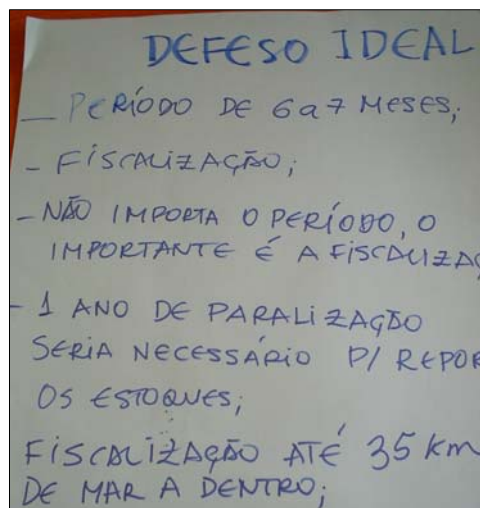 DEFESO IDEAL
— PERÍODO DE 6 a 7 MESES;
- FISCALIZAÇÃO;
- NÃO IMPORTA O PERÍODO, O
IMPORTANTE É A FISCALIZAÇ
- 1 ANO DE PARALIZAÇÃO
SERIA NECESSÁRIO P/ REPOR
OS ESTOQUES;
FISCALIZAÇÃO ATÉ 35 km
DE MAR A DENTRO;